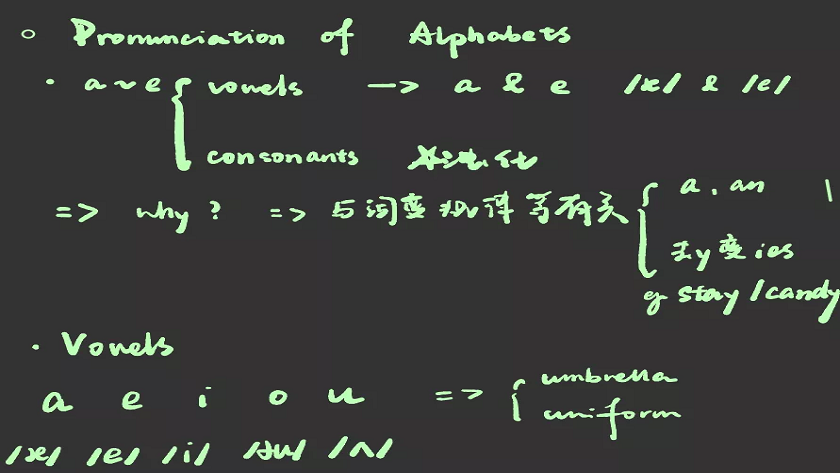 Pronunciation of Alphabets
a ~ e { vowels -> a & e /æ/ & /e/
consonants
=> why? => 与词变规律等有关 { a, an
去y变ies
eg stay / candy
Vowels
a e i o u => { umbrella
uniform
/æ/ /e/ /i/ /əu/ /ʌ/